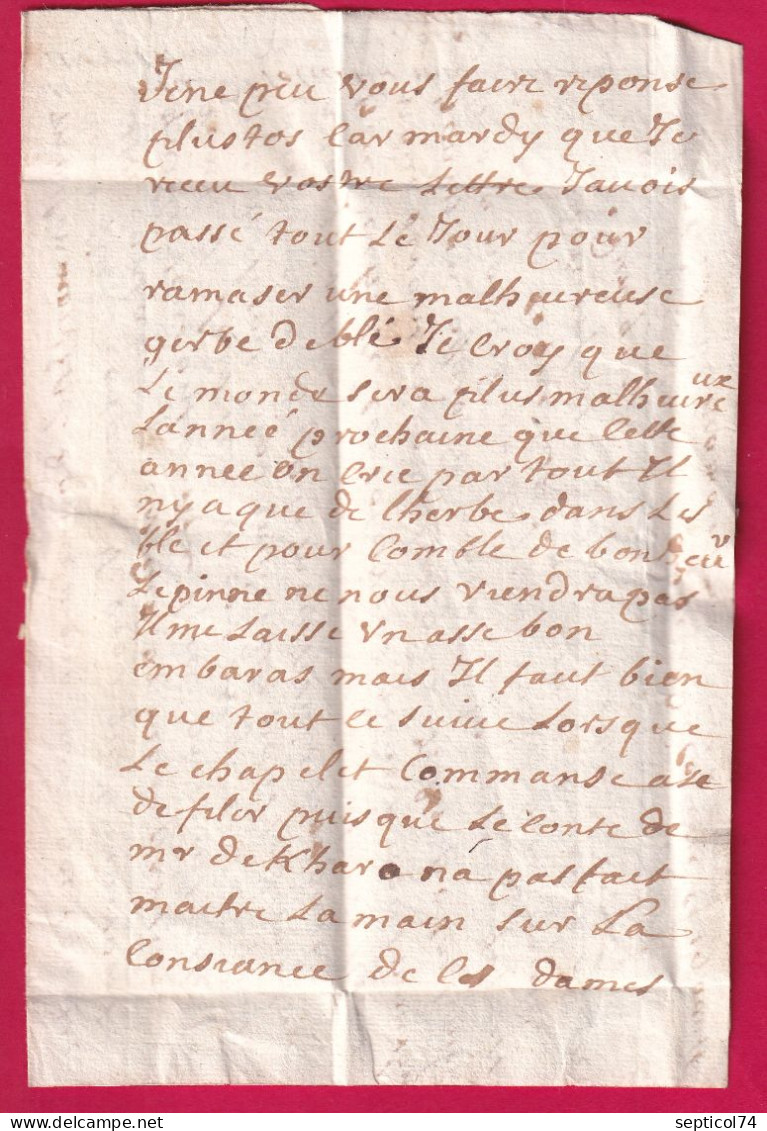 Je ne peu vous faire reponse
plustos Car mardy que Je
receu vostre Lettre Javois
passé tout Le Jour pour
ramaser une malhureuse
gerbe de blé Je Croy que
Le monde sera plus malhureux
Lanneé prochaine que Cette
anneé on Crie par tout Il
ny a que de Lherbe dans Les
blé et pour Comble de bonheur
Lepinne ne nous viendra pas
Il me Laisse Un asse bon
embaras mais Il faut bien
que tout Ce suive Lorsque
Le chapelet Commanse a se
defiler puis que Le Conte de
mr de Kharo na pas fait
maitre La main sur La
Consiance de Ces dames
septicol74